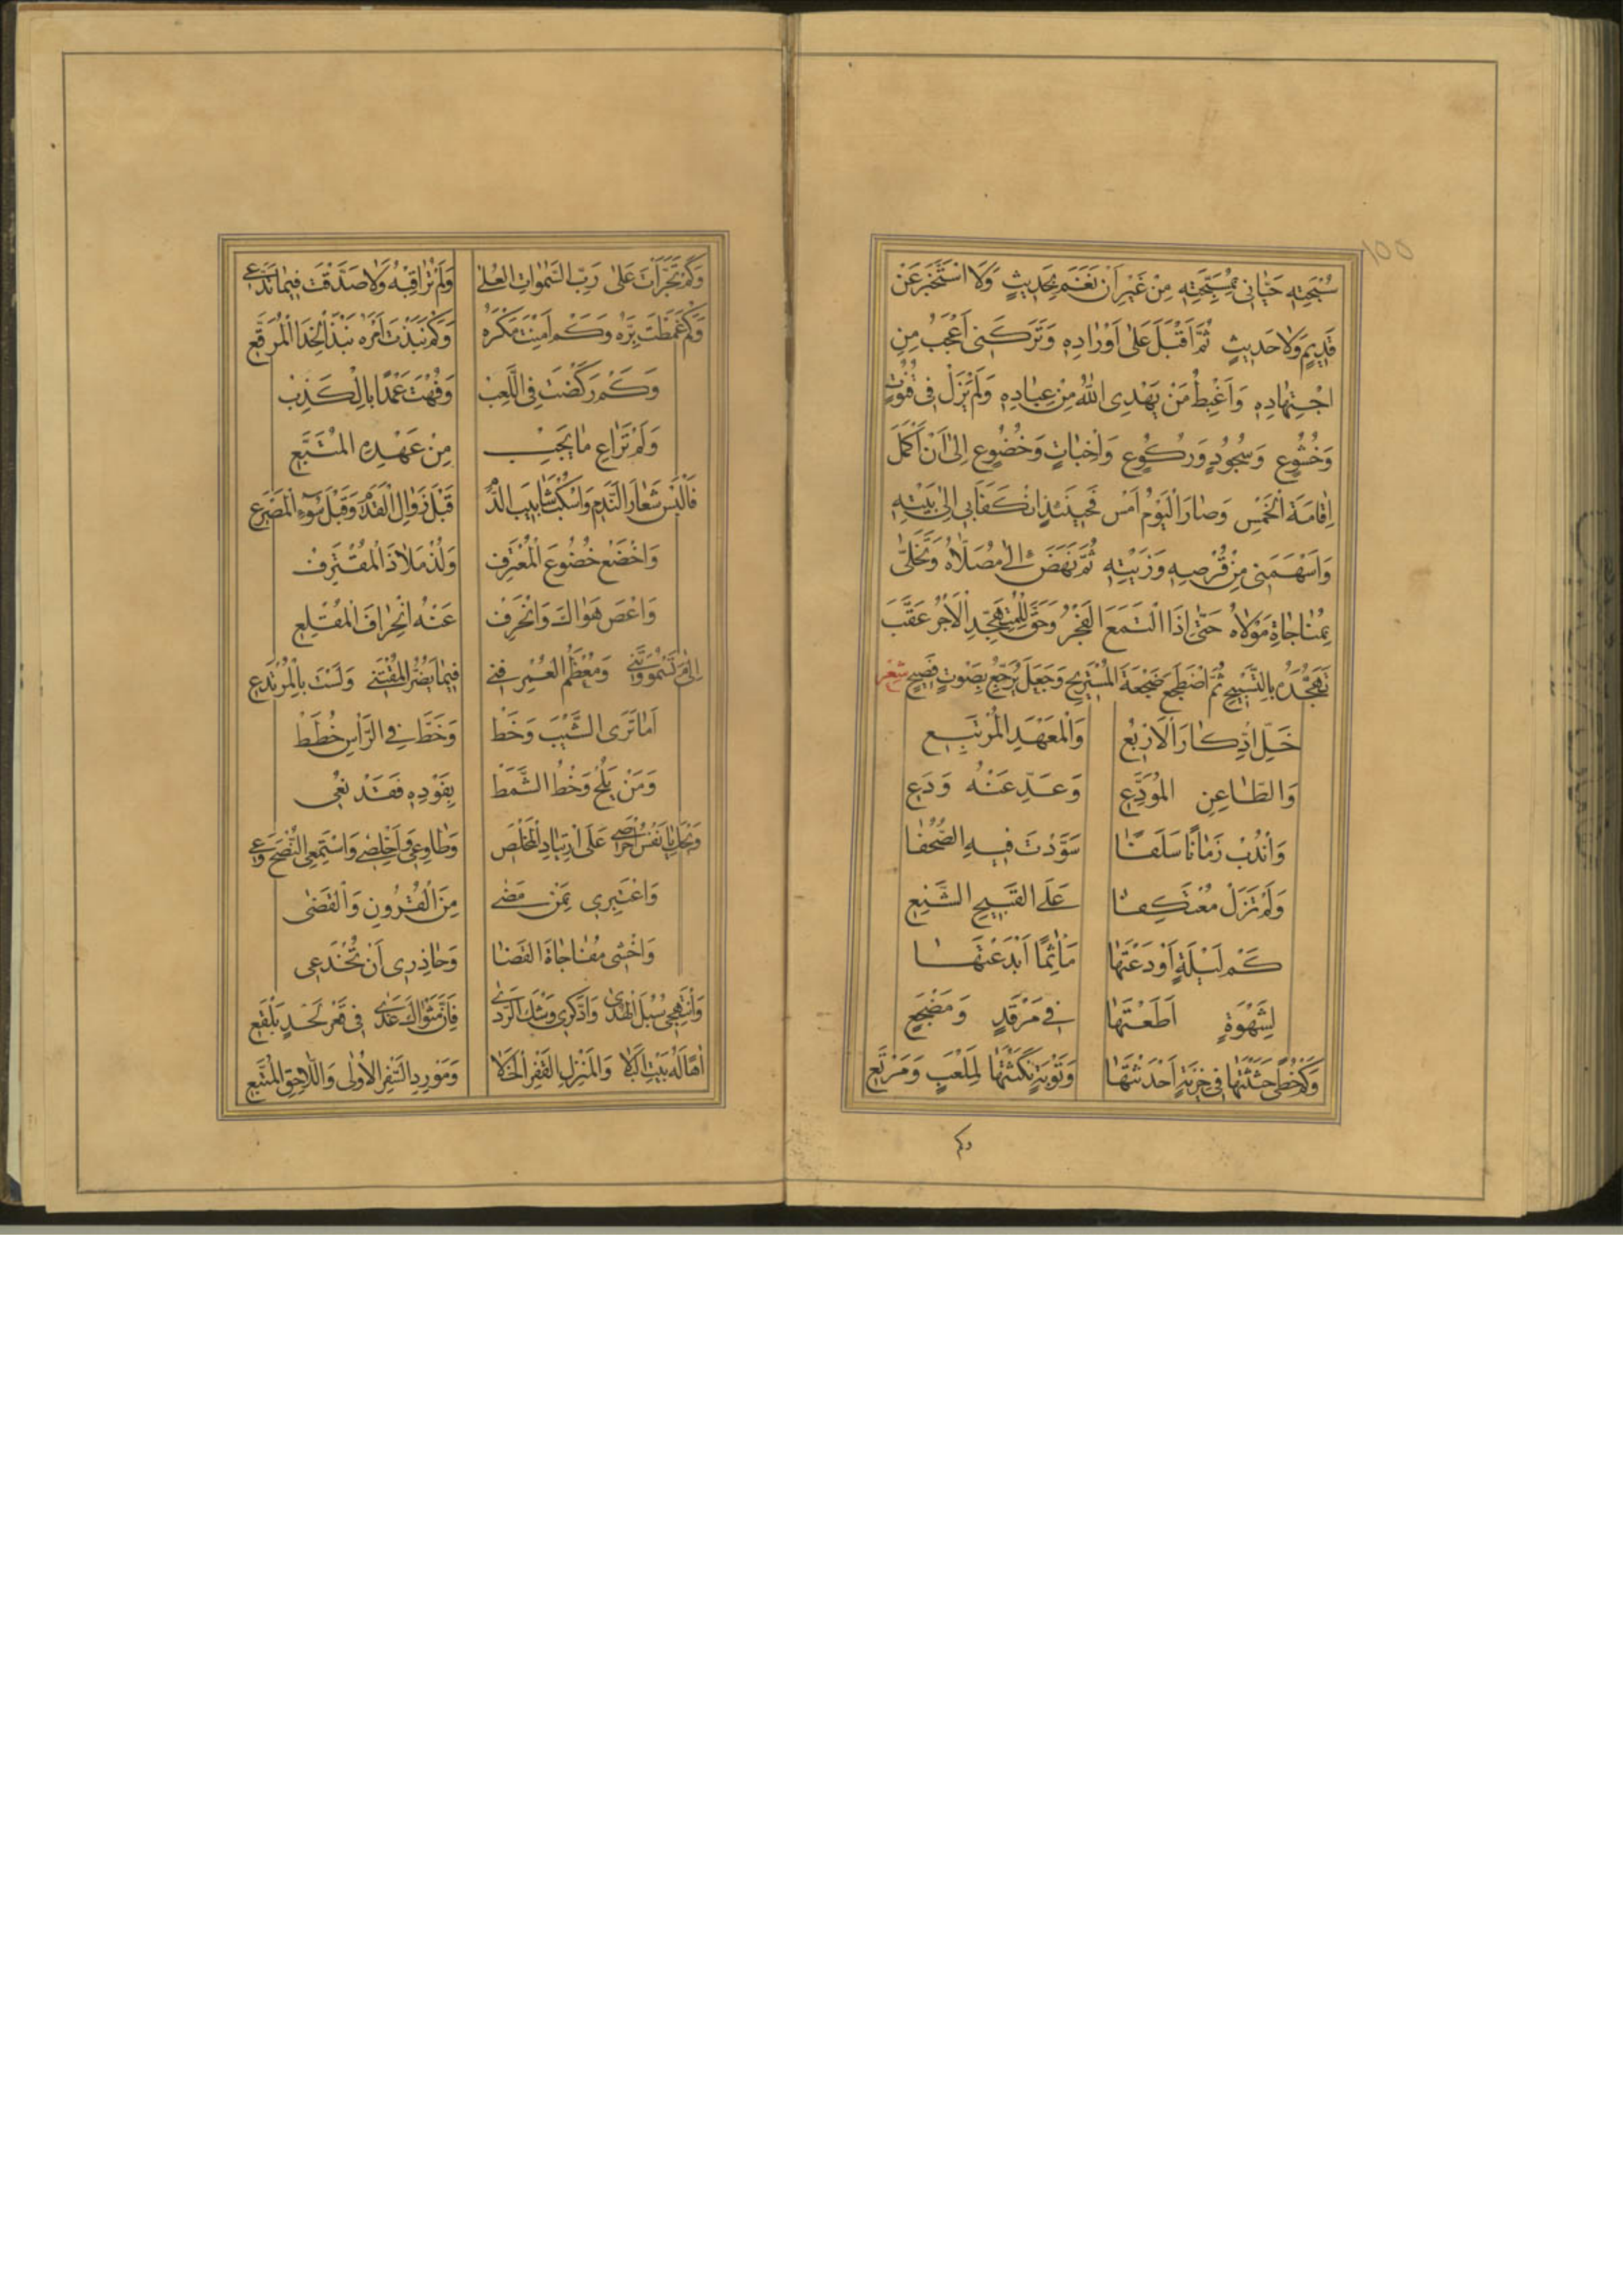 ١٥٥
سُبْحَتِهِ حَيَّانِي بِمُسَبِّحَتِهِ مِنْ غَيْرِ أَنْ نَغَمَ بِحَدِيثٍ وَلَا اسْتَخْبَرَ عَنْ
قَدِيمٍ وَلَا حَدِيثٍ ثُمَّ أَقْبَلَ عَلَى أَوْرَادِهِ وَتَرَكَنِي أَعْجَبُ مِنِ
اجْتِهَادِهِ وَأَغْبِطُ مَنْ يَهْدِي اللهُ مِنْ عِبَادِهِ وَلَمْ يَزَلْ فِي قُنُوتٍ
وَخُشُوعٍ وَسُجُودٍ وَرُكُوعٍ وَإِخْبَاتٍ وَخُضُوعٍ إِلَى أَنْ أَكْمَلَ
إِقَامَةَ الْخَمْسِ وَصَارَ الْيَوْمُ أَمْسِ فَحِينَئِذٍ انْكَفَأَ بِي إِلَى بَيْتِهِ
وَأَسْهَمَنِي مِنْ قُرْصِهِ وَزَيْتِهِ ثُمَّ نَهَضَ إِلَى مُصَلَّاهُ وَتَخَلَّى
بِمُنَاجَاةِ مَوْلَاهُ حَتَّى إِذَا الْتَمَعَ الْفَجْرُ وَحَقَّ لِلْمُتَهَجِّدِ الْأَجْرُ عَقَّبَ
تَهَجُّدَهُ بِالتَّسْبِيحِ ثُمَّ اضْطَجَعَ ضَجْعَةَ الْمُسْتَرِيحِ وَجَعَلَ يُرَجِّعُ بِصَوْتٍ فَصِيحٍ شِعْر
خَلِّ ادِّكَارَ الْأَرْبُعِ وَالْمَعْهَدِ الْمُرْتَبَعِ
وَالظَّاعِنِ الْمُوَدِّعِ وَعَدِّ عَنْهُ وَدَعِ
وَانْدُبْ زَمَانًا سَلَفَا سَوَّدْتَ فِيهِ الصُّحُفَا
وَلَمْ تَزَلْ مُعْتَكِفَا عَلَى الْقَبِيحِ الشَّنِعِ
كَمْ لَيْلَةٍ أَوْدَعْتَهَا مَآثِمًا أَبْدَعْتَهَا
لِشَهْوَةٍ أَطَعْتَهَا فِي مَرْقَدٍ وَمَضْجَعِ
وَكَمْ خُطًى حَثَثْتَهَا فِي خِزْيَةٍ أَحْدَثْتَهَا وَتَوْبَةٍ نَكَثْتَهَا لِمَلْعَبٍ وَمَرْتَعِ
وكم
وَكَمْ تَجَرَّأْتَ عَلَى رَبِّ السَّمَوَاتِ الْعُلَى وَلَمْ تُرَاقِبْهُ وَلَا صَدَّقْتَ فِيمَا تَدَّعِي
وَكَمْ غَمَطْتَ بِرَّهُ وَكَمْ أَمِنْتَ مَكْرَهُ وَكَمْ نَبَذْتَ أَمْرَهُ نَبْذَ الْحِذَا الْمُرَقَّعِ
وَكَمْ رَكَضْتَ فِي اللَّعِبْ وَفُهْتَ عَمْدًا بِالْكَذِبْ
وَلَمْ تُرَاعِ مَا يَجِبْ مِنْ عَهْدِهِ الْمُتَّبَعِ
فَالْبَسْ شِعَارَ النَّدَمِ وَاسْكُبْ شَآبِيبَ الدَّمِ قَبْلَ زَوَالِ الْقَدَمِ وَقَبْلَ سُوءِ الْمَصْرَعِ
وَاخْضَعْ خُضُوعَ الْمُعْتَرِفْ وَلُذْ مَلَاذَ الْمُقْتَرِفْ
وَاعْصِ هَوَاكَ وَانْحَرِفْ عَنْهُ انْحِرَافَ الْمُقْلِعِ
إِلَى مَ تَسْهُو وَتَنِي وَمُعْظَمُ الْعُمْرِ فَنِي فِيمَا يَضُرُّ الْمُقْتَنِي وَلَسْتَ بِالْمُرْتَدِعِ
أَمَا تَرَى الشَّيْبَ وَخَطْ وَخَطَّ فِي الرَّأْسِ خُطَطْ
وَمَنْ يَلُحْ وَخْطُ الشَّمَطْ بِفَوْدِهِ فَقَدْ نُعِي
وَيْحَكِ يَا نَفْسُ احْرِصِي عَلَى ارْتِيَادِ الْمَخْلَصِ وَطَاوِعِي وَأَخْلِصِي وَاسْتَمِعِي النُّصْحَ وَعِي
وَاعْتَبِرِي بِمَنْ مَضَى مِنَ الْقُرُونِ وَانْقَضَى
وَاخْشَيْ مُفَاجَاةَ الْقَضَا وَحَاذِرِي أَنْ تُخْدَعِي
وَانْتَهِجِي سُبْلَ الْهُدَى وَادَّكِرِي وَشْكَ الرَّدَى فَإِنَّ مَثْوَاكَ غَدًا فِي قَعْرِ لَحْدٍ بَلْقَعِ
آهًا لَهُ بَيْتِ الْبَلَا وَالْمَنْزِلِ الْقَفْرِ الْخَلَا وَمَوْرِدِ السَّفْرِ الْأُولَى وَاللَّاحِقِ الْمُتَّبِعِ